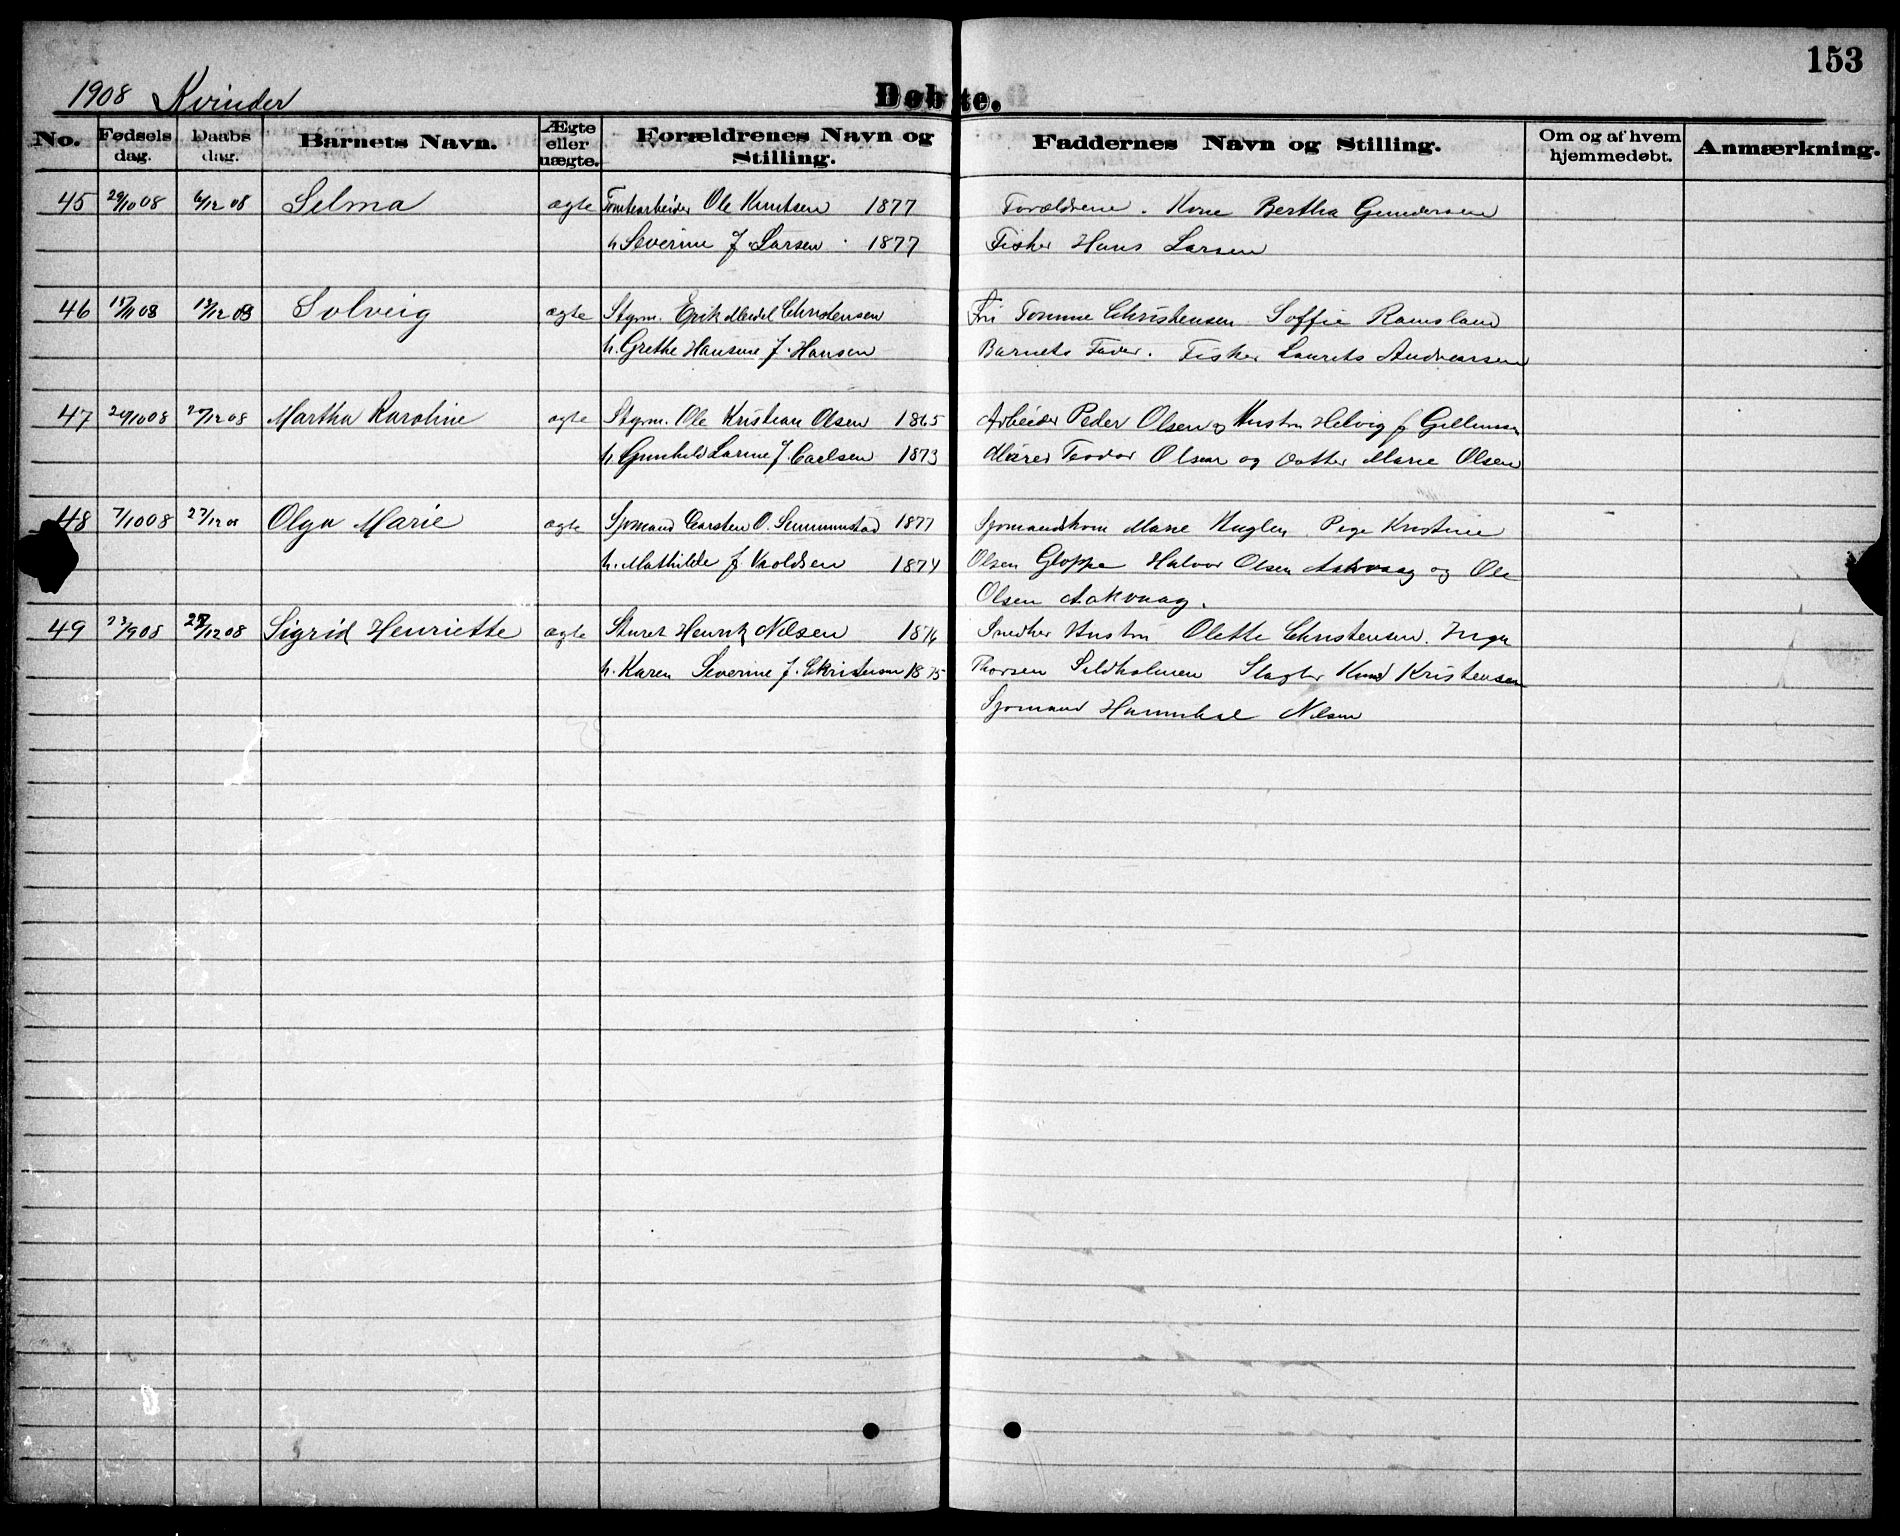 153
1908 Kvinder
Døbte.
No. Fødsels dag. Daabs dag. Barnets Navn. Ægte eller uægte. Forældrenes Navn og Stilling. Faddernes Navn og Stilling. Om og af hvem hjemmedøbt. Anmærkning.
45 29/10 08 6/12 08 Selma ægte Tomtearbeider Ole Knutsen 1877 Forældrene. Kone Bertha Gundersen
h. Severine f. Larsen 1877 Fisker Hans Larsen
46 /11 08 13/12 08 Solveig ægte Styrm. Erik Christensen Frk Tomine Christensen Soffie Ramsland
h. Grethe Hansine f. Hansen Barnets Fader. Fisker Laurits Andreassen
47 24/10 08 20/12 08 Martha Karoline ægte Styrm. Ole Kristian Olsen 1865 Arbeider Peder Olsen og Hustru Helvig f
h. Gunhild Larine f. Carlsen 1873 Murer Teodor Olsen og Datter Marie Olsen
48 7/10 08 27/12 08 Olga Marie ægte Sjømand Carsten O. 1877 Sjømandskone Marie Huglen. Pige Kristine
h. Mathilde f. 1874 Olsen Gloppe Halvor Olsen Aakvaag og Ole
Olsen Aakvaag.
49 23/9 08 27/12 08 Sigrid Henriette ægte Sturet Henrik Nilsen 1876 Snedker Hustru Olette Christensen. Inga
h. Karen Severine f. Christensen 1875 Thorsen Sildholmen Slagter Knud Kristensen
Sjømand Hannibal Nilsen